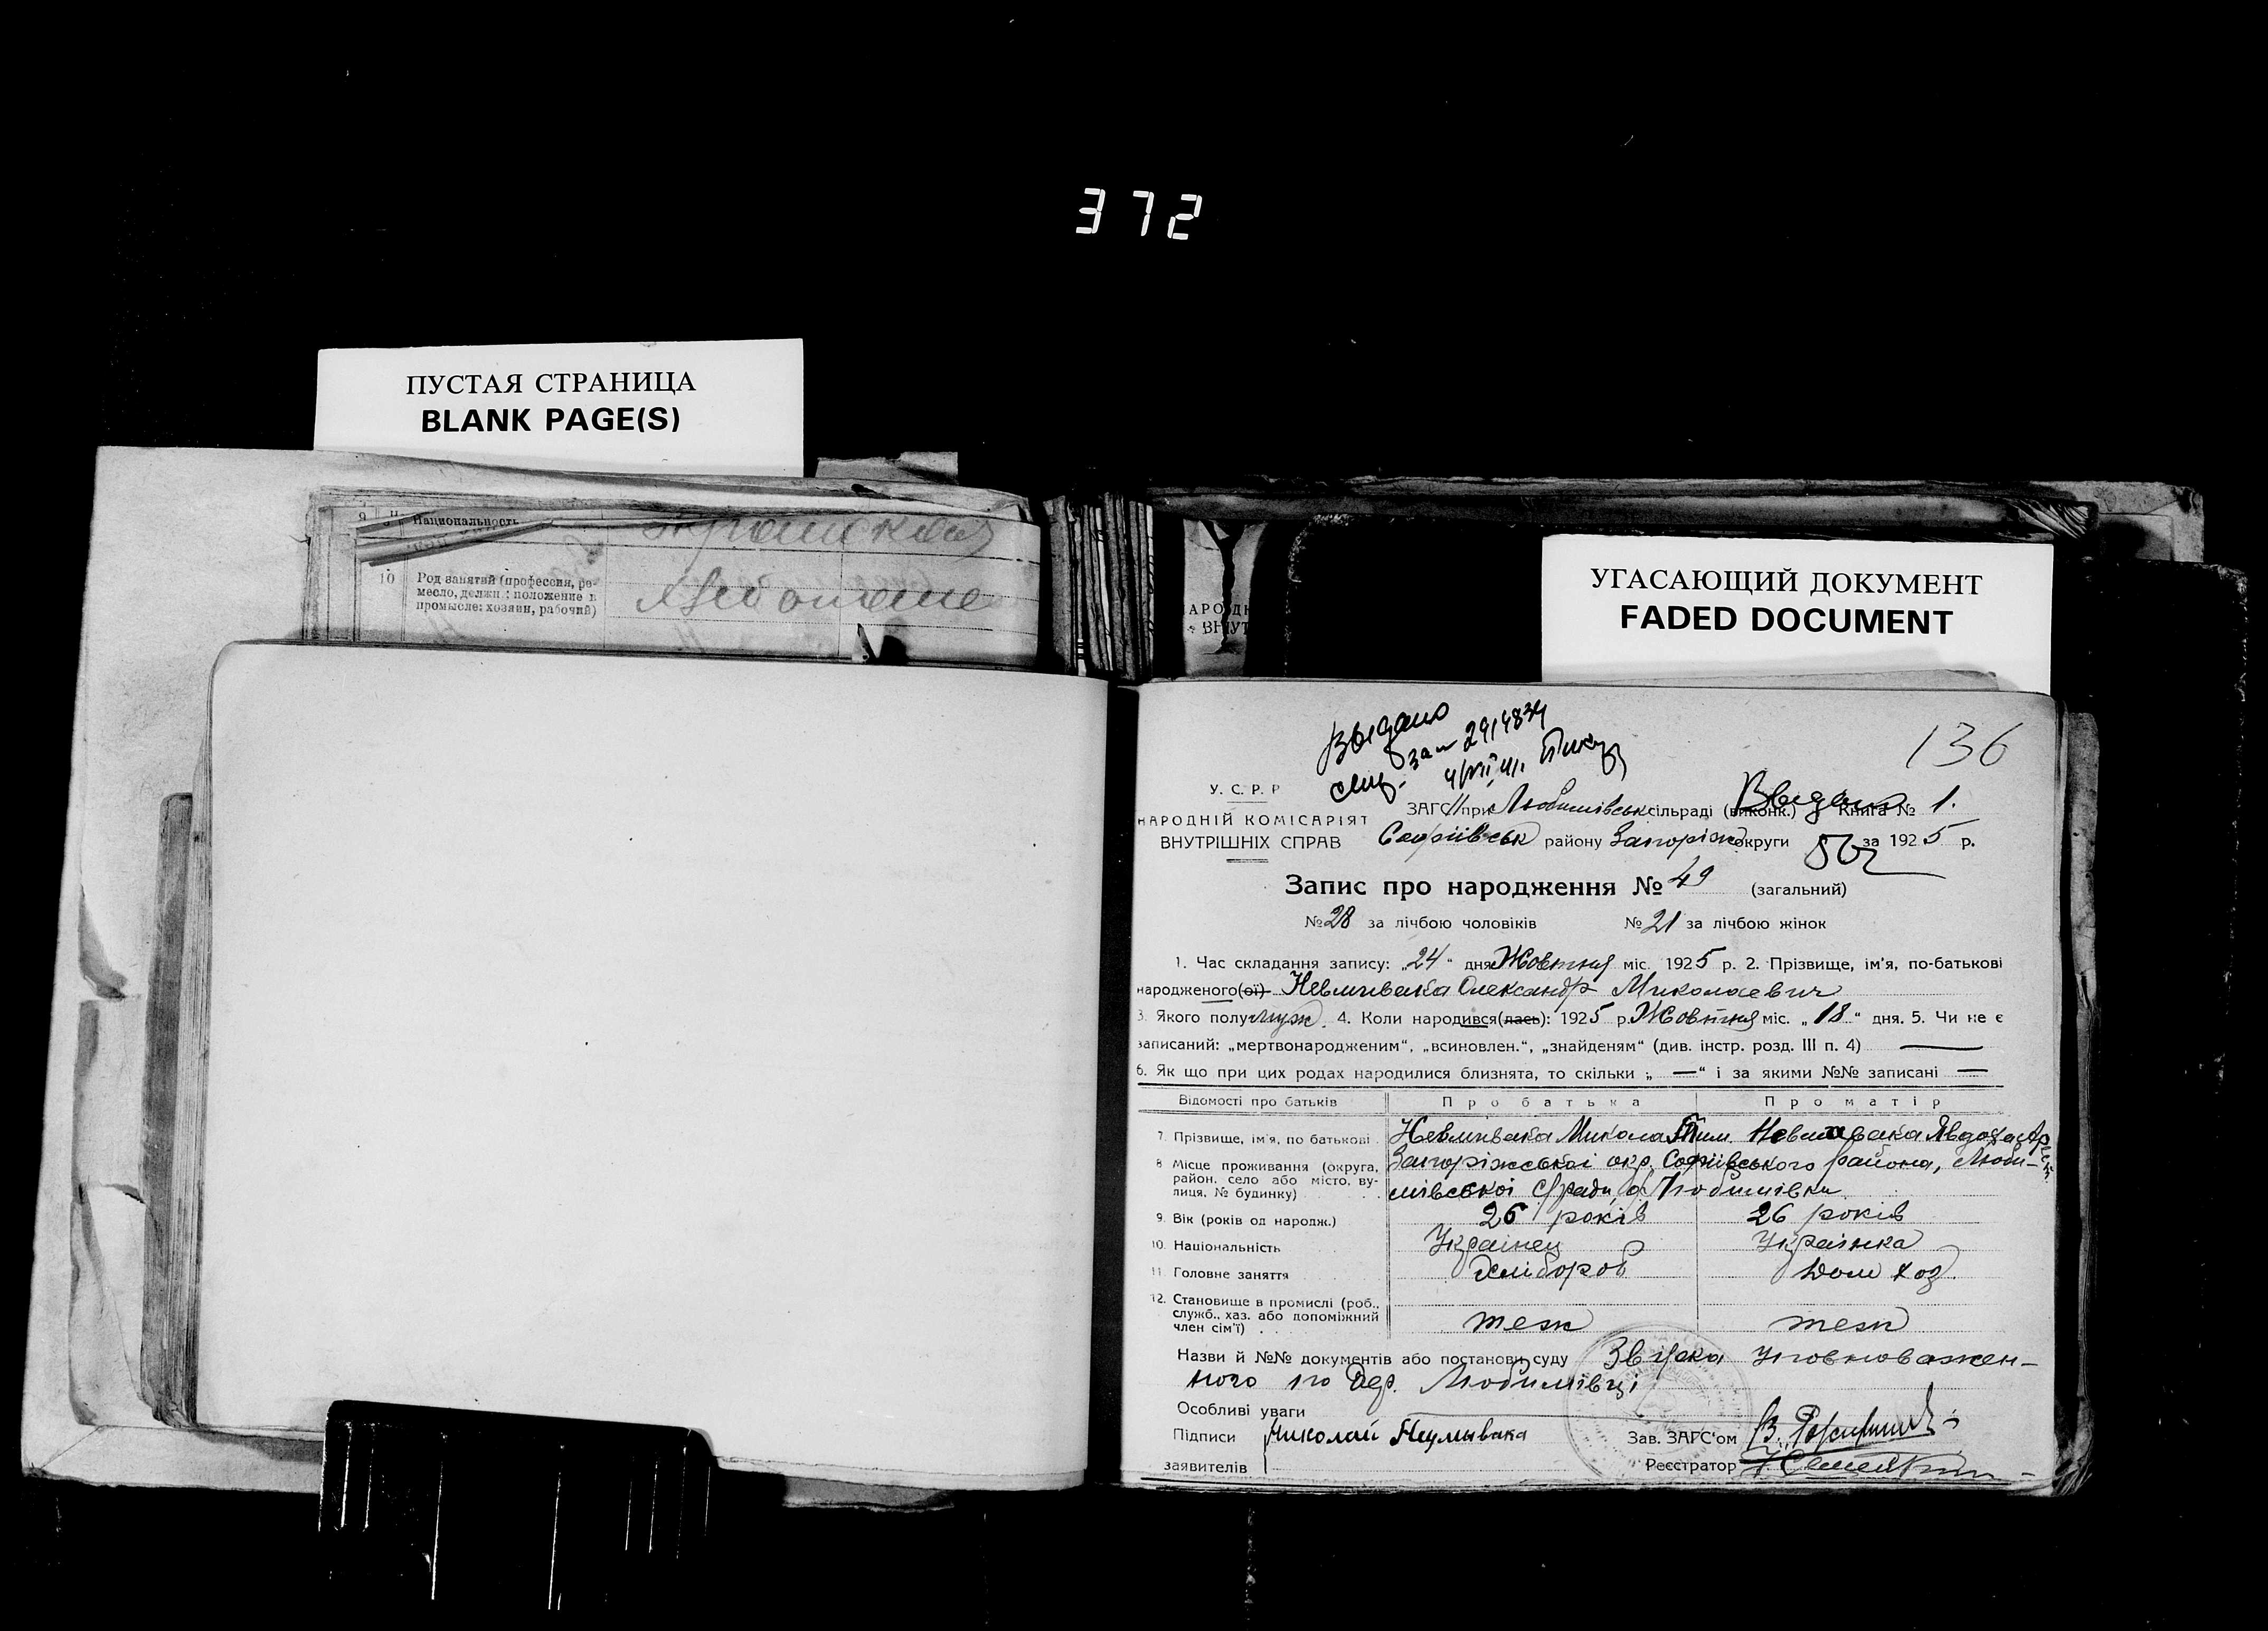 372
ПУСТАЯ СТРАНИЦА
BLANK PAGE(S)
9
Национальность
10
Род занятий (профессия, ре-
месло, должн.; положение в
промысле: хозяин, рабочий)
УГАСАЮЩИЙ ДОКУМЕНТ
FADED DOCUMENT
136
Выдано
У. С. Р. Р
НАРОДНІЙ КОМІСАРІЯТ
ВНУТРІШНІХ СПРАВ
ЗАГС при Любимівськ сільраді (виконк.) Книга № 1.
Софіївськ району Запоріж округи за 1925 р.
Запис про народження № 49 (загальний)
№ 28 за лічбою чоловіків № 21 за лічбою жінок
1. Час складання запису: „24“ дня Жовтня міс. 1925 р. 2. Прізвище, ім'я, по-батькові
народженого(ої) Невмивака Олександр Миколаевич
3. Якого полу муж. 4. Коли народився(лась): 1925 р. Жовтня міс. „18“ дня. 5. Чи не є
записаний: „мертвонародженим“, „всиновлен.“, „знайденям“ (див. інстр. розд. III п. 4) —
6. Як що при цих родах народилися близнята, то скільки „—“ і за якими №№ записані —
Відомості про батьків Про батька Про матір
7. Прізвище, ім'я, по батькові Невмивака Микола Тим. Невмивака Явдоха
8 Місце проживання (округа, район, село або місто, ву-лиця, № будинку)
Запоріжської окр. Софіївського района, Люби-
мівської с/ради, с. Любимівка
9. Вік (років од народж.) 26 років 26 років
10. Національність Українец Українка
11. Головне заняття Хлібороб Дом Хоз.
12. Становище в промислі (роб., служб., хаз. або допоміжний член сім'ї) теж теж
Назви й №№ документів або постанови суду Звістка Уповноважен-
ного по Дер. Любимівці
Особливі уваги
Підписи Николай Неумывака Зав. ЗАГС'ом
заявителів Реєстратор